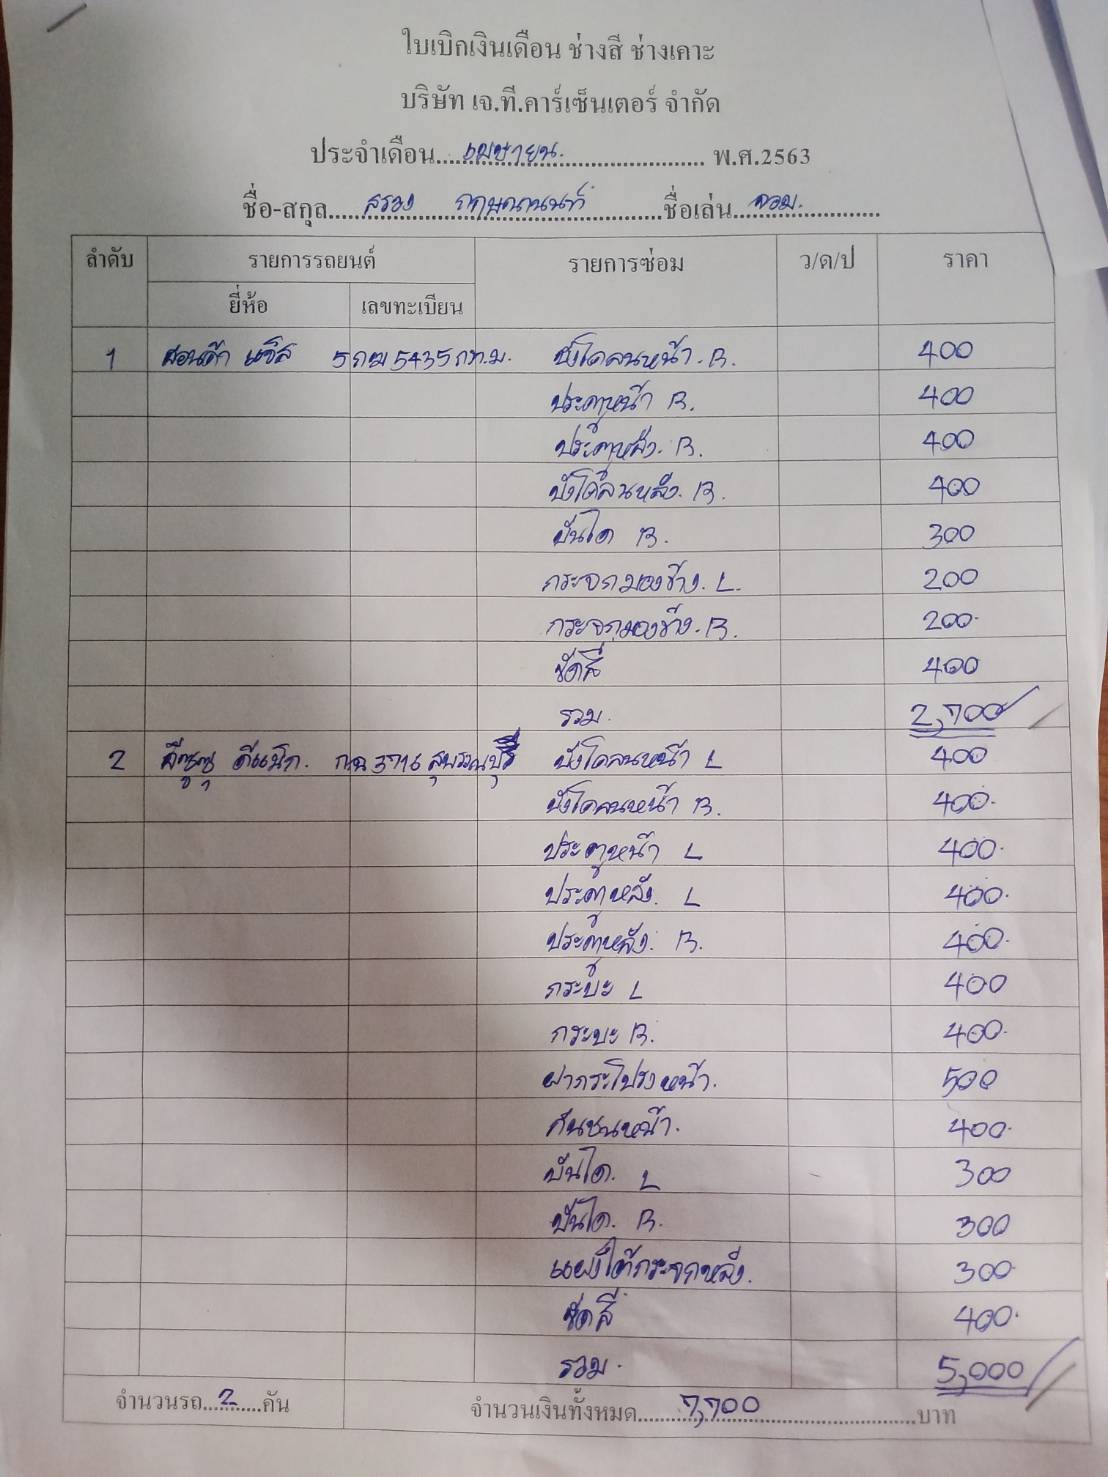 ใบเบิกเงินเดือน ช่างสี ช่างเคาะ
บริษัท เจ.ที.คาร์เซ็นเตอร์ จำกัด
ประจำเดือน....เมษายน.................... พ.ศ.2563
ชื่อ-สกุล..... กฤษณานนท์ ..........ชื่อเล่น..จอม...........
ลำดับ รายการรถยนต์ รายการซ่อม ว/ด/ป ราคา
ยี่ห้อ เลขทะเบียน
1 ฮอนด้า แจ๊ส 5กฌ5435 ก.ท.ม. บังโคลนหน้า. R. 400
ประตูหน้า R. 400
ประตูหลัง. R. 400
บังโคลนหลัง. R. 400
บันได R. 300
กระจกมองข้าง. L. 200
กระจกมองข้าง. R. 200.
ขัดสี 400
รวม. 2,700
2 อีซูซุ ดีแม็ก. 3716 สุพรรณบุรี บังโคลนหน้า L 400
บังโคลนหน้า R. 400.
ประตูหน้า L 400.
ประตูหลัง. L 400.
ประตูหลัง. R. 400.
กระบะ L 400
กระบะ R. 400.
ฝากระโปรงหน้า. 500
กันชนหน้า. 400.
บันได. L 300
บันได. R. 300
แผงใต้กระจกหลัง. 300.
ขัดสี 400.
รวม. 5,000
จำนวนรถ...2......คัน จำนวนเงินทั้งหมด........7,700..................บาท